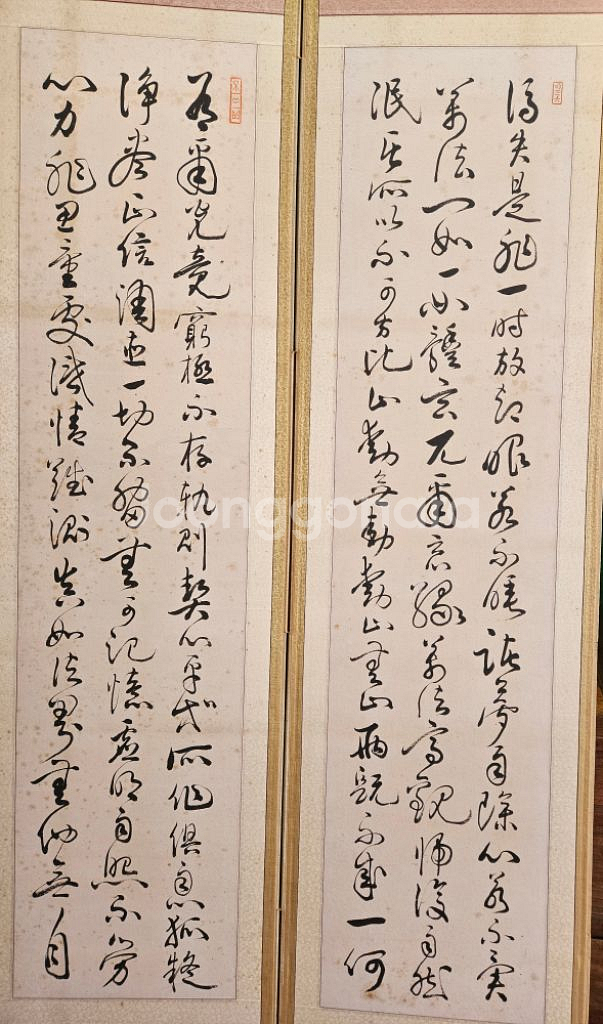 得失是非一時放却眼若不睡諸夢自除心若不異
萬法一如一如體玄兀爾忘緣萬法齊觀歸復自然
泯其所以不可方比止動無動動止無止兩既不成一何
有爾究竟窮極不存軌則契心平等所作俱息狐疑
淨盡正信調直一切不留無可記憶虛明自照不勞
心力非思量處識情難測真如法界無他無自
joonggonara